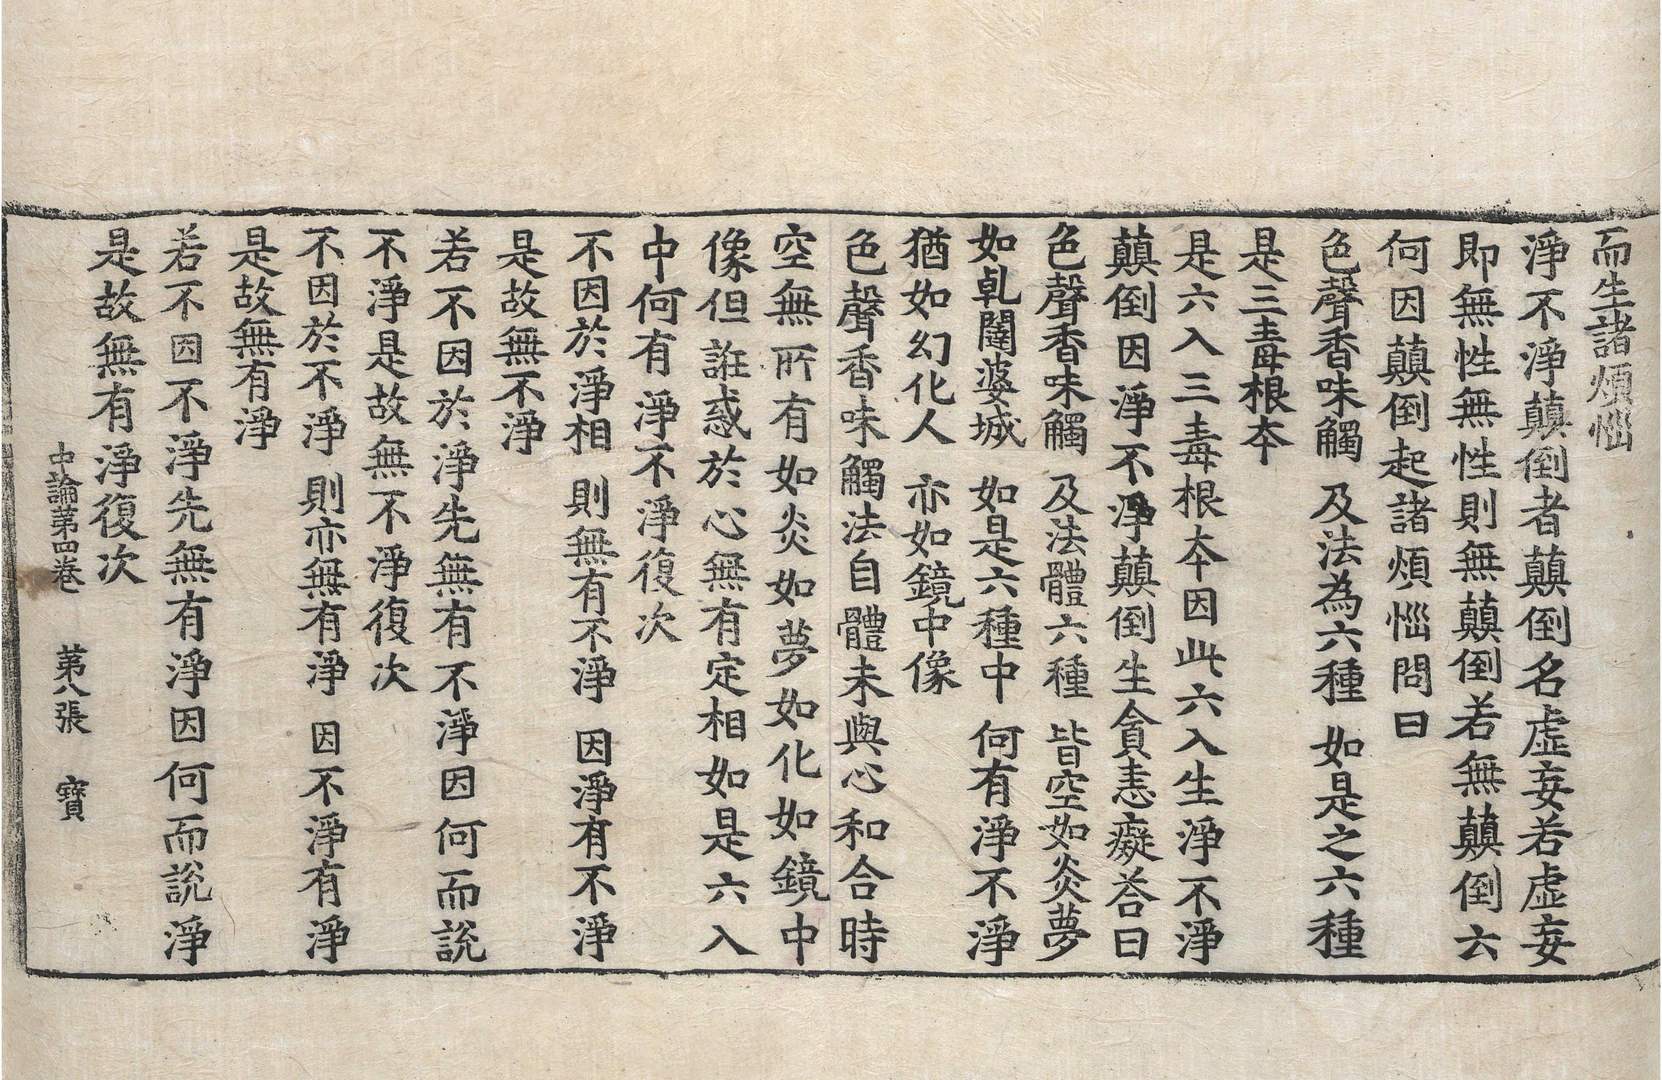 而生諸煩惱
淨不淨顚倒者顚倒名虛妄若虛妄
即無性無性則無顚倒若無顚倒云
何因顚倒起諸煩惱問曰
色聲香味觸 及法為六種 如是之六種
是三毒根本
是六入三毒根本因此六入生淨不淨
顚倒因淨不淨顚倒生貪恚癡荅曰
色聲香味觸 及法體六種 皆空如炎夢
如乹闥婆城 如是六種中 何有淨不淨
猶如幻化人 亦如鏡中像
色聲香味觸法自體未與心和合時
空無所有如炎如夢如化如鏡中
像但誑惑於心無有定相如是六入
中何有淨不淨復次
不因於淨相 則無有不淨 因淨有不淨
是故無不淨
若不因於淨先無有不淨因何而說
不淨是故無不淨復次
不因於不淨 則亦無有淨 因不淨有淨
是故無有淨
若不因不淨先無有淨因何而說淨
是故無有淨復次
中論第四卷 第八張 寶